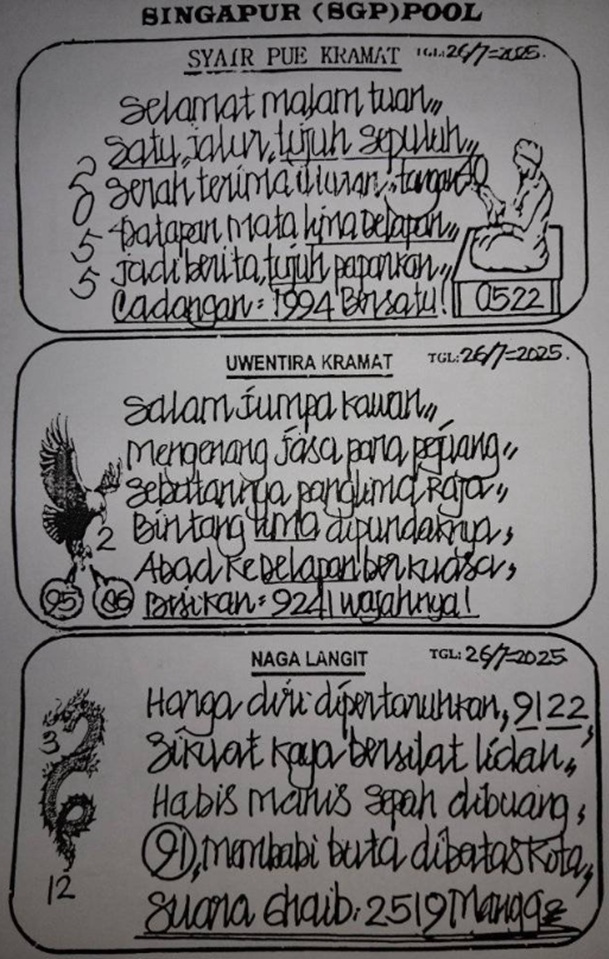 SINGAPUR (SGP) POOL
SYAIR PUE KRAMAT TGL:26/7=2025.
Selamat malam tuan,,
Satu, jalur, tujuh sepuluh,,
Serah terima tangan
Tatapan mata lima delapan,,
Jadi berita, tujuh paparkan,,
Cadangan: 1994 Bersatu!
5
0
5
5
0522
UWENTIRA KRAMAT TGL:26/7=2025.
Salam jumpa kawan,,
Mengenang jasa para pejuang,,
Sebatannya panglima Raja,,
Bintang lima dipundaknya,
Abad ke Delapan berkuasa,
Bisikan: 9241 wajahnya!
2
95 86
NAGA LANGIT TGL:26/7=2025
Harga diri dipertaruhkan, 9122,
Sikuat kaya bersilat lidah,,
Habis manis sepah dibuang,
91, membabi buta dibatas Kota,,
Suara Ghaib: 2519 Mangga
3
12